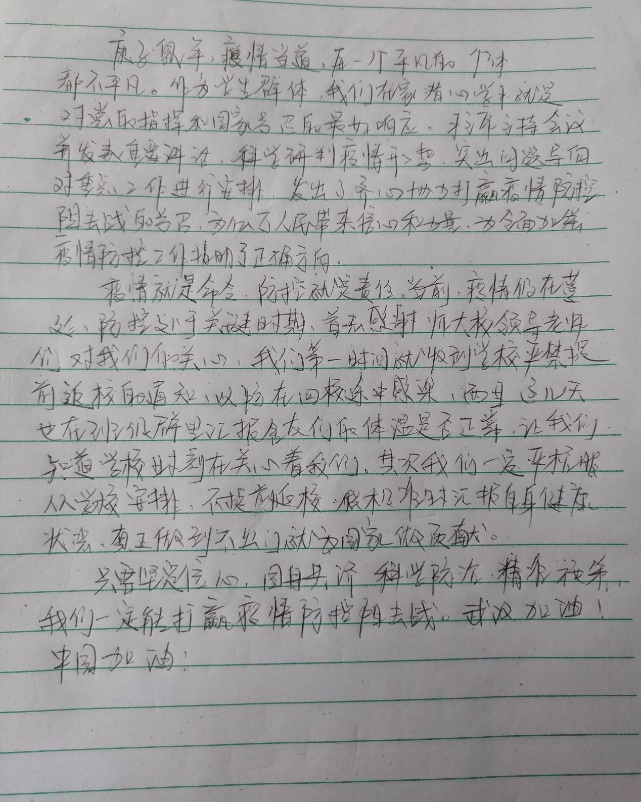 庚子鼠年,疫情当道,在一个平凡的个体
都不平凡。作为学生群体,我们在家潜心学习就是
对党的指挥和国家号召的最好响应。主席主持会议
并发表重要讲话,科学研判疫情形势,突出问题导向
对重点工作进行安排 发出了齐心协力打赢疫情防控
阻击战的号召,为亿万人民带来信心和力量,为全面加强
疫情防控工作指明了正确方向。
疫情就是命令,防控就是责任,当前,疫情仍在蔓
延、防控处于关键时期,首先感谢师大校领导老师
们对我们的关心,我们第一时间就收到学校严禁提
前返校的通知,以防在回校途中感染,而且这几天
也在班级群里汇报舍友们的体温是否正常,让我们
知道学校时刻在关心着我们,其次我们一定严格服
从学校安排,不提前返校,积极准时汇报自身健康
状态,真正做到不出门就为国家做贡献。
只要坚定信心 同舟共济 科学防治 精准施策
我们一定能打赢疫情防控阻击战。武汉加油!
中国加油!